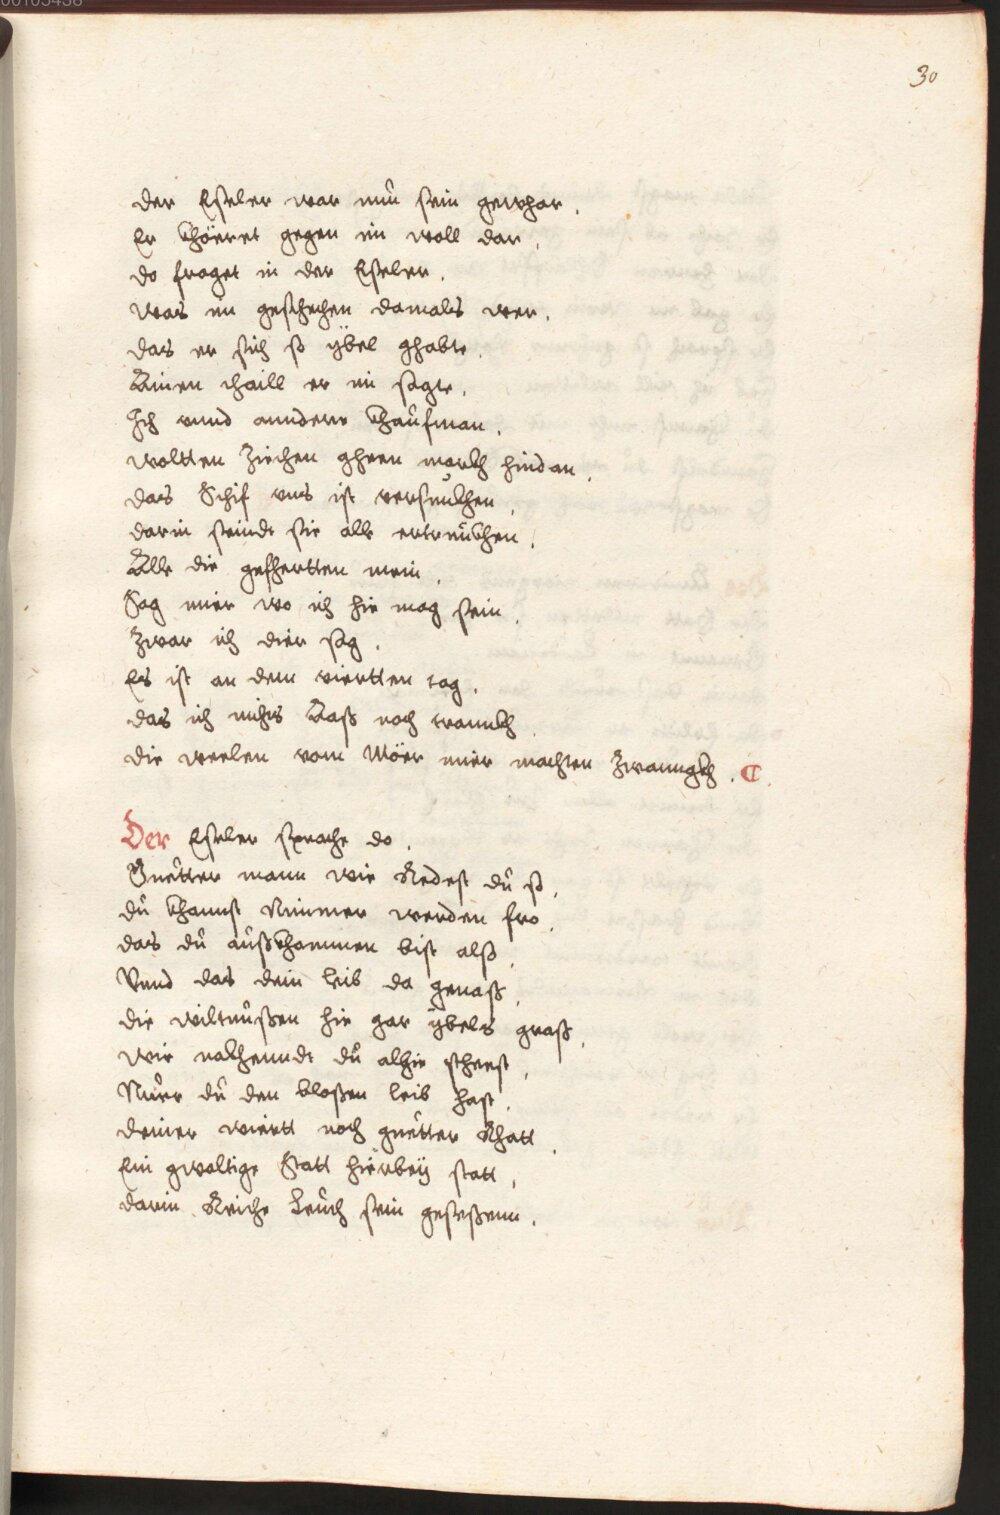 30
der Eseler war nun sein gewhar.
Er khöeret gegen im woll dar,
do fraget in der Eseler,
was im geschechen damals wer,
das er sich so ÿbel ghabte,
Ainen thaill er im sagte,
Ich vnnd anndere khaufman,
woltten Ziechen gheen markh hindan,
das Schif vns ist versunkhen,
darin seindt sie alle ertrunkhen,
Alle die gefhertten mein,
Sag mier wo ich hie mag sein,
Zwar ich dier sag,
Es ist an dem viertten tag,
das ich nichts Aaß noch trannkh,
die weelen vom Möer mier machten Zwanngkh.
Der Eseler sprache do,
Guetter mann wie Redest du so,
du khannst Nimmer werden fro,
das du außkhommen bist alß,
Vnnd das dein leib da genaß,
die wiltnußen hie gar ÿbels graß,
wie nakhenndt du alhie stheest,
Nuer du den bloßen leib hast,
deiner wiertt noch guetter Rhatt,
Ein gwaltige Statt hierbeÿ statt,
darin Reiche Leuth sein geseßenn,